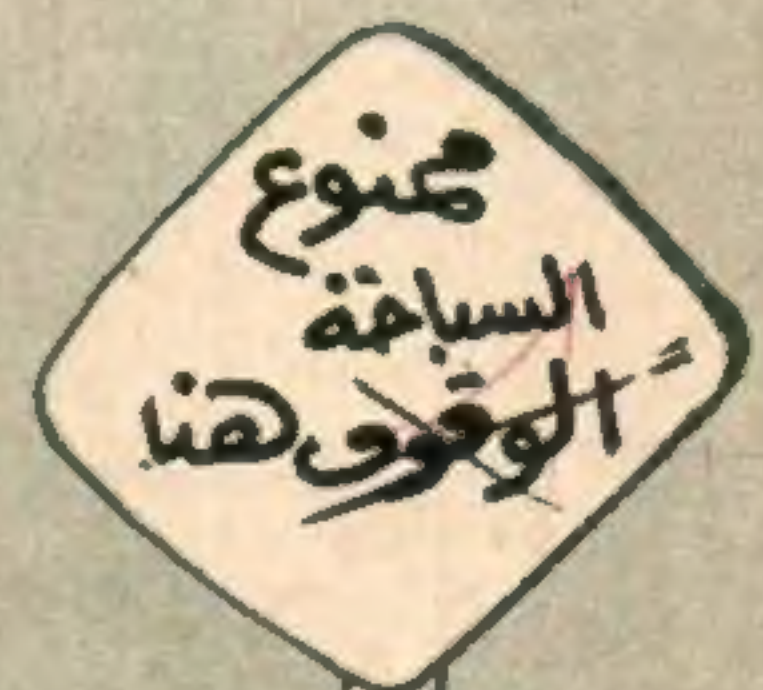 ممنوع
السباحة
الوقوف هنا